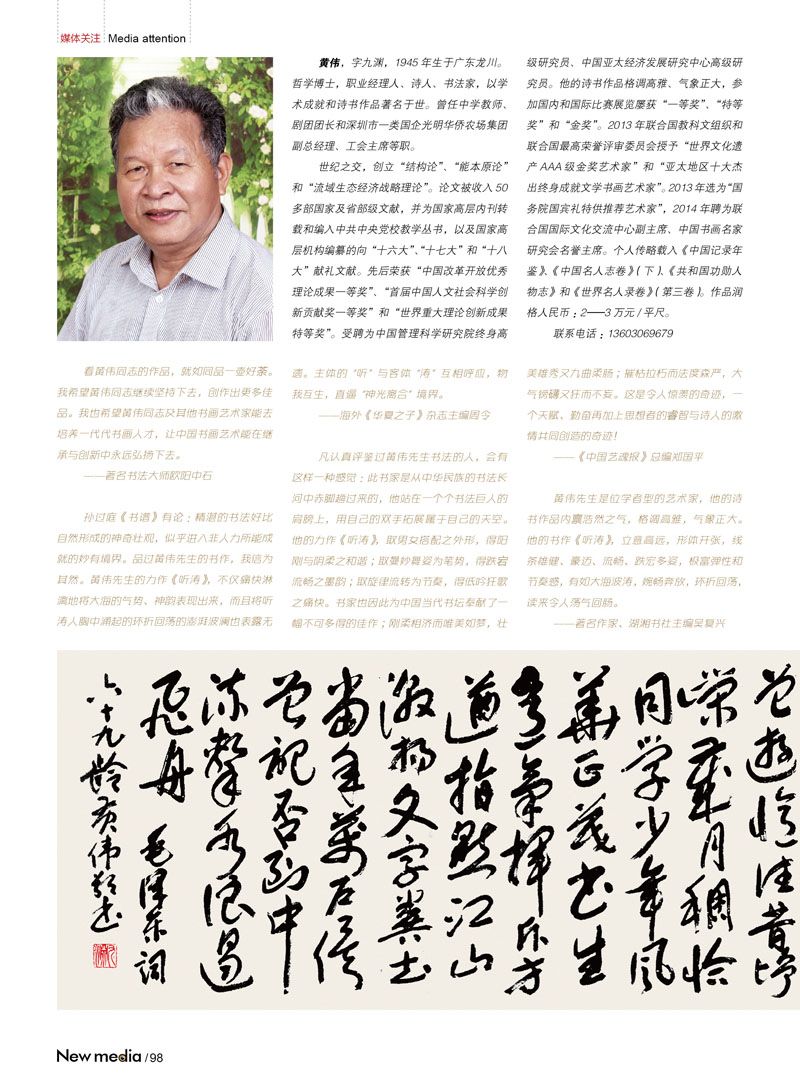 媒体关注 Media attention
黄伟，字九渊，1945 年生于广东龙川。
哲学博士，职业经理人、诗人、书法家，以学
术成就和诗书作品著名于世。曾任中学教师、
剧团团长和深圳市一类国企光明华侨农场集团
副总经理、工会主席等职。
世纪之交，创立“结构论”、“能本原论”
和“流域生态经济战略理论”。论文被收入 50
多部国家及省部级文献，并为国家高层内刊转
载和编入中共中央党校教学丛书，以及国家高
层机构编纂的向“十六大”、“十七大”和“十八
大”献礼文献。先后荣获“中国改革开放优秀
理论成果一等奖”、“首届中国人文社会科学创
新贡献奖一等奖”和“世界重大理论创新成果
特等奖”。受聘为中国管理科学研究院终身高
级研究员、中国亚太经济发展研究中心高级研
究员。他的诗书作品格调高雅、气象正大，参
加国内和国际比赛展览屡获“一等奖”、“特等
奖”和“金奖”。2013 年联合国教科文组织和
联合国最高荣誉评审委员会授予“世界文化遗
产 AAA 级金奖艺术家”和“亚太地区十大杰
出终身成就文学书画艺术家”。2013 年选为“国
务院国宾礼特供推荐艺术家”，2014 年聘为联
合国国际文化交流中心副主席、中国书画名家
研究会名誉主席。个人传略载入《中国记录年
鉴》、《中国名人志卷》（下）、《共和国功勋人
物志》和《世界名人录卷》（第三卷）。作品润
格人民币：2——3 万元 / 平尺。
联系电话：13603069679
看黄伟同志的作品，就如同品一壶好茶。
我希望黄伟同志继续坚持下去，创作出更多佳
品。我也希望黄伟同志及其他书画艺术家能去
培养一代代书画人才，让中国书画艺术能在继
承与创新中永远弘扬下去。
——著名书法大师欧阳中石
孙过庭《书谱》有论：精湛的书法好比
自然形成的神奇壮观，似乎进入非人力所能成
就的妙有境界。品过黄伟先生的书作，我信为
其然。黄伟先生的力作《听涛》，不仅痛快淋
漓地将大海的气势、神韵表现出来，而且将听
涛人胸中涌起的环折回荡的澎湃波澜也表露无
遗。主体的“听”与客体“涛”互相呼应，物
我互生，直逼“神光离合”境界。
——海外《华夏之子》杂志主编周今
凡认真评鉴过黄伟先生书法的人，会有
这样一种感觉：此书家是从中华民族的书法长
河中赤脚趟过来的，他站在一个个书法巨人的
肩膀上，用自己的双手拓展属于自己的天空。
他的力作《听涛》，取男女搭配之外形，得阳
刚与阴柔之和谐；取曼妙舞姿为笔势，得跌宕
流畅之墨韵；取旋律流转为节奏，得低吟狂歌
之痛快。书家也因此为中国当代书坛奉献了一
幅不可多得的佳作；刚柔相济而唯美如梦，壮
美雄秀又九曲柔肠；摧枯拉朽而法度森严，大
气磅礴又狂而不妄。这是令人惊羡的奇迹，一
个天赋、勤奋再加上思想者的睿智与诗人的激
情共同创造的奇迹！
——《中国艺魂报》总编郑国平
黄伟先生是位学者型的艺术家，他的诗
书作品内蕴浩然之气，格调高雅，气象正大。
他的书作《听涛》，立意高远，形体开张，线
条雄健、豪迈、流畅、跌宕多姿，极富弹性和
节奏感，有如大海波涛，婉畅奔放，环折回荡，
读来令人荡气回肠。
——著名作家、湖湘书社主编吴复兴
曾游忆往昔峥
嵘岁月稠恰
同学少年风
华正茂书生
意气挥斥方
遒指点江山
激扬文字粪土
当年万户侯
曾记否到中
流击水浪遏
飞舟 毛泽东词
六十九龄黄伟敬书
New media / 98